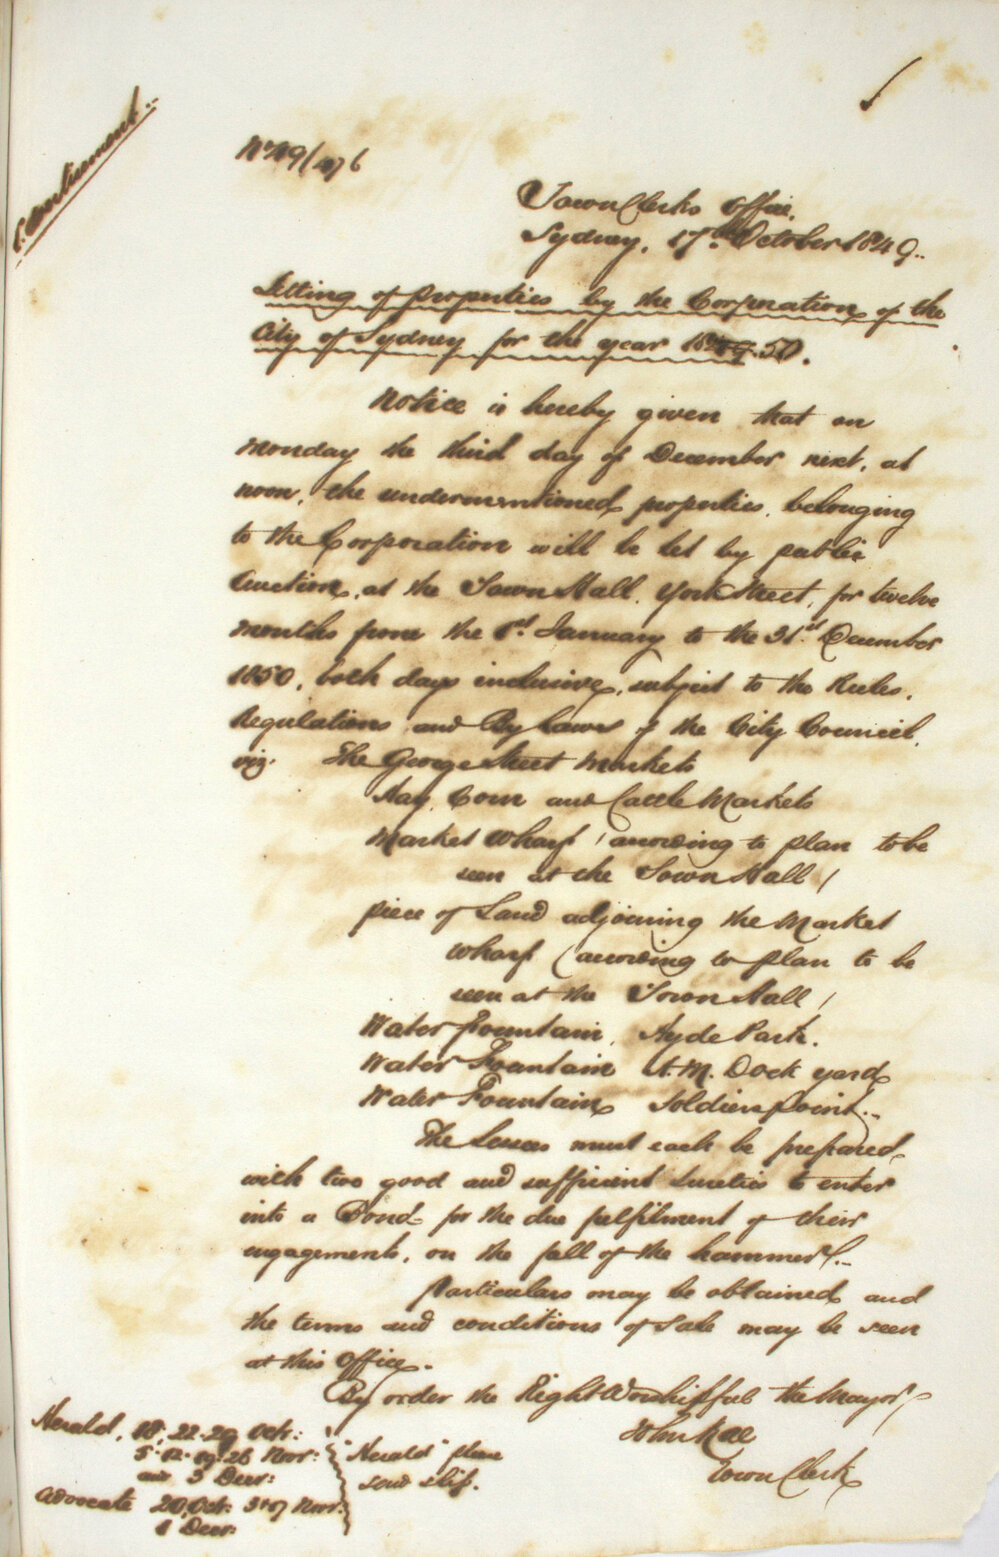 Advertisement
No 49/476
Town Clerk's Office,
Sydney, 17th October 1849.
Letting of properties by the Corporation of the
City of Sydney for the year 1850.
Notice is hereby given that on
Monday the third day of December next, at
noon, the undermentioned properties, belonging
to the Corporation will be let by public
Auction, at the Town Hall, York Street, for twelve
months from the 1st January to the 31st December
1850, both days inclusive, subject to the Rules,
Regulations and By Laws of the City Council,
viz. The George Street Markets
Hay, Corn and Cattle Markets
Market Wharf (according to plan to be
seen at the Town Hall)
piece of Land adjoining the Market
Wharf (according to plan to be
seen at the Town Hall)
Water Fountain, Hyde Park.
Water Fountain H.M. Dock yard
Water Fountain Soldiers point.
The Lessees must each be prepared
with two good and sufficient Sureties to enter
into a Bond for the due fulfilment of their
engagements, on the fall of the hammer.
Particulars may be obtained and
the terms and conditions of Sale may be seen
at this Office.
By order the Right Worshipful the Mayor
John Rae
Town Clerk
Herald, 18, 22. 29 Oct:
5. 12. 19. 26 Novr:
and 3 Decr:
Advocate 20, Oct: 3 & 17 Novr:
1 Decr:
"Herald" please
send slip.